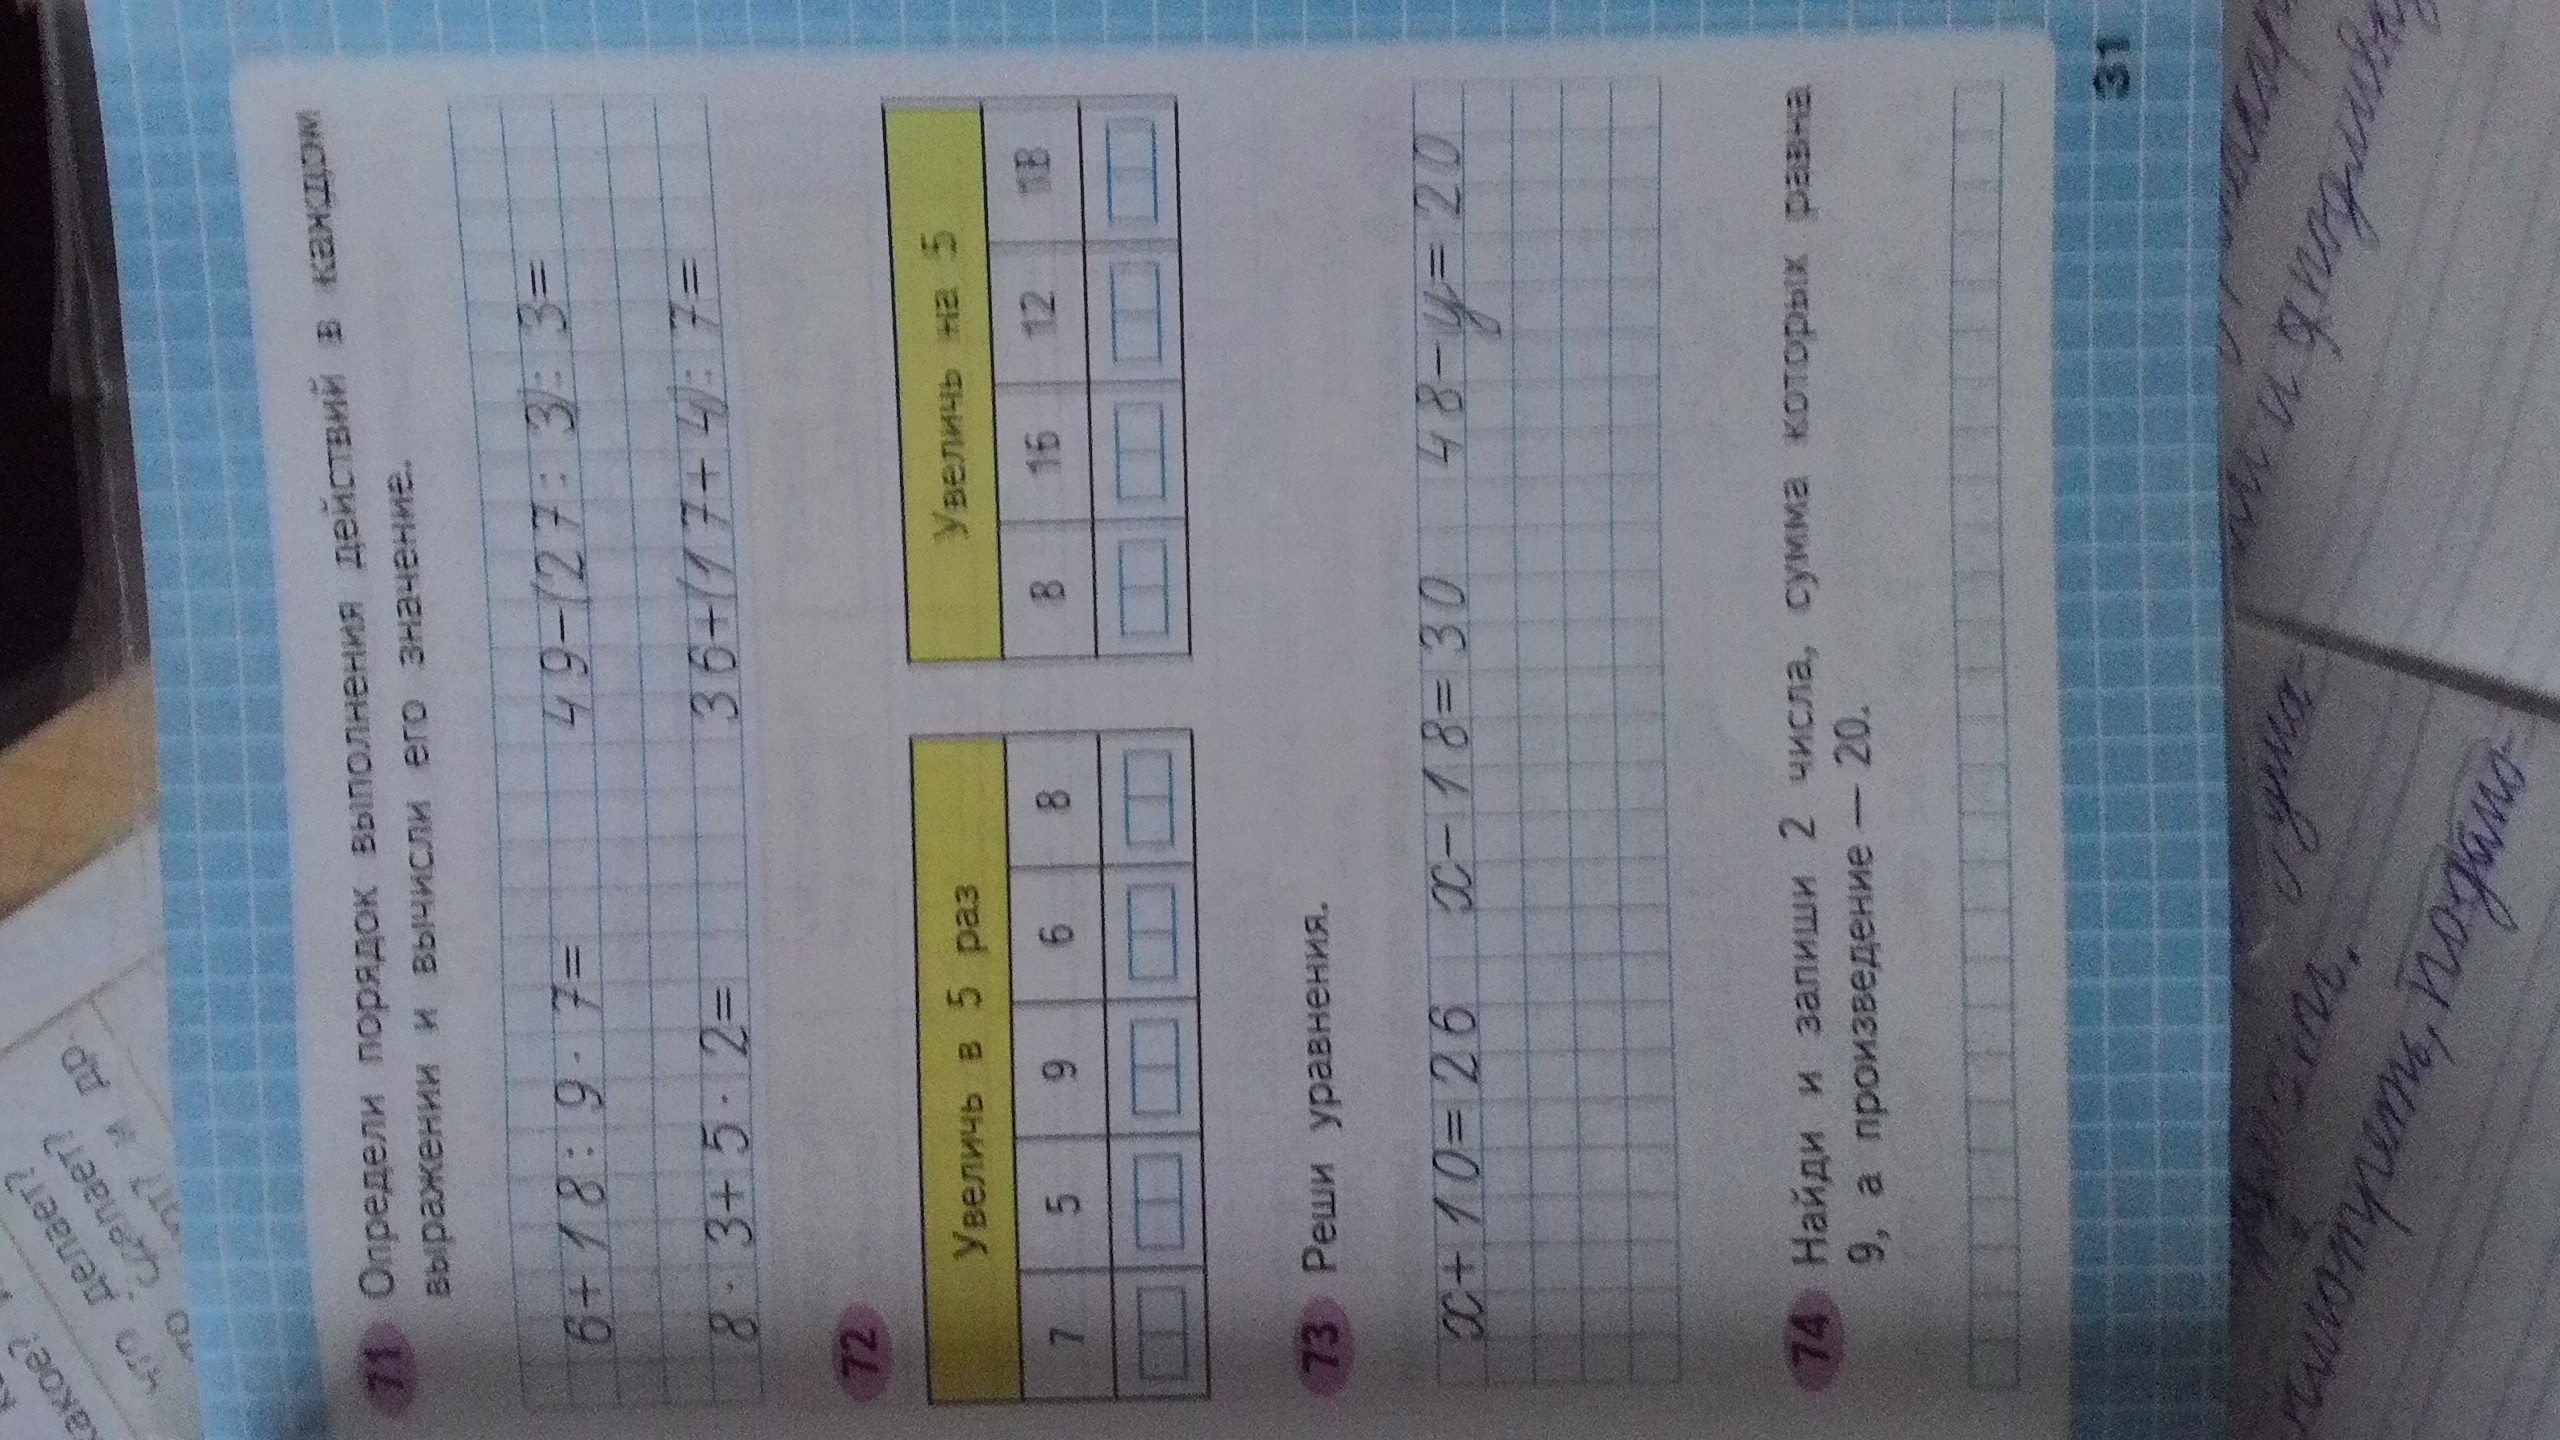 71 Определи порядок выполнения действий в каждом
выражении и вычисли его значение.
6+18:9·7= 49-(27:3):3=
8·3+5·2= 36+(17+4):7=
72
Увеличь в 5 раз
7 5 9 6 8
Увеличь на 5
8 16 12 18
73 Реши уравнения.
x+10=26 x-18=30 48-y=20
74 Найди и запиши 2 числа, сумма которых равна
9, а произведение — 20.
31
какое?
что делает?
сделает?
и др.